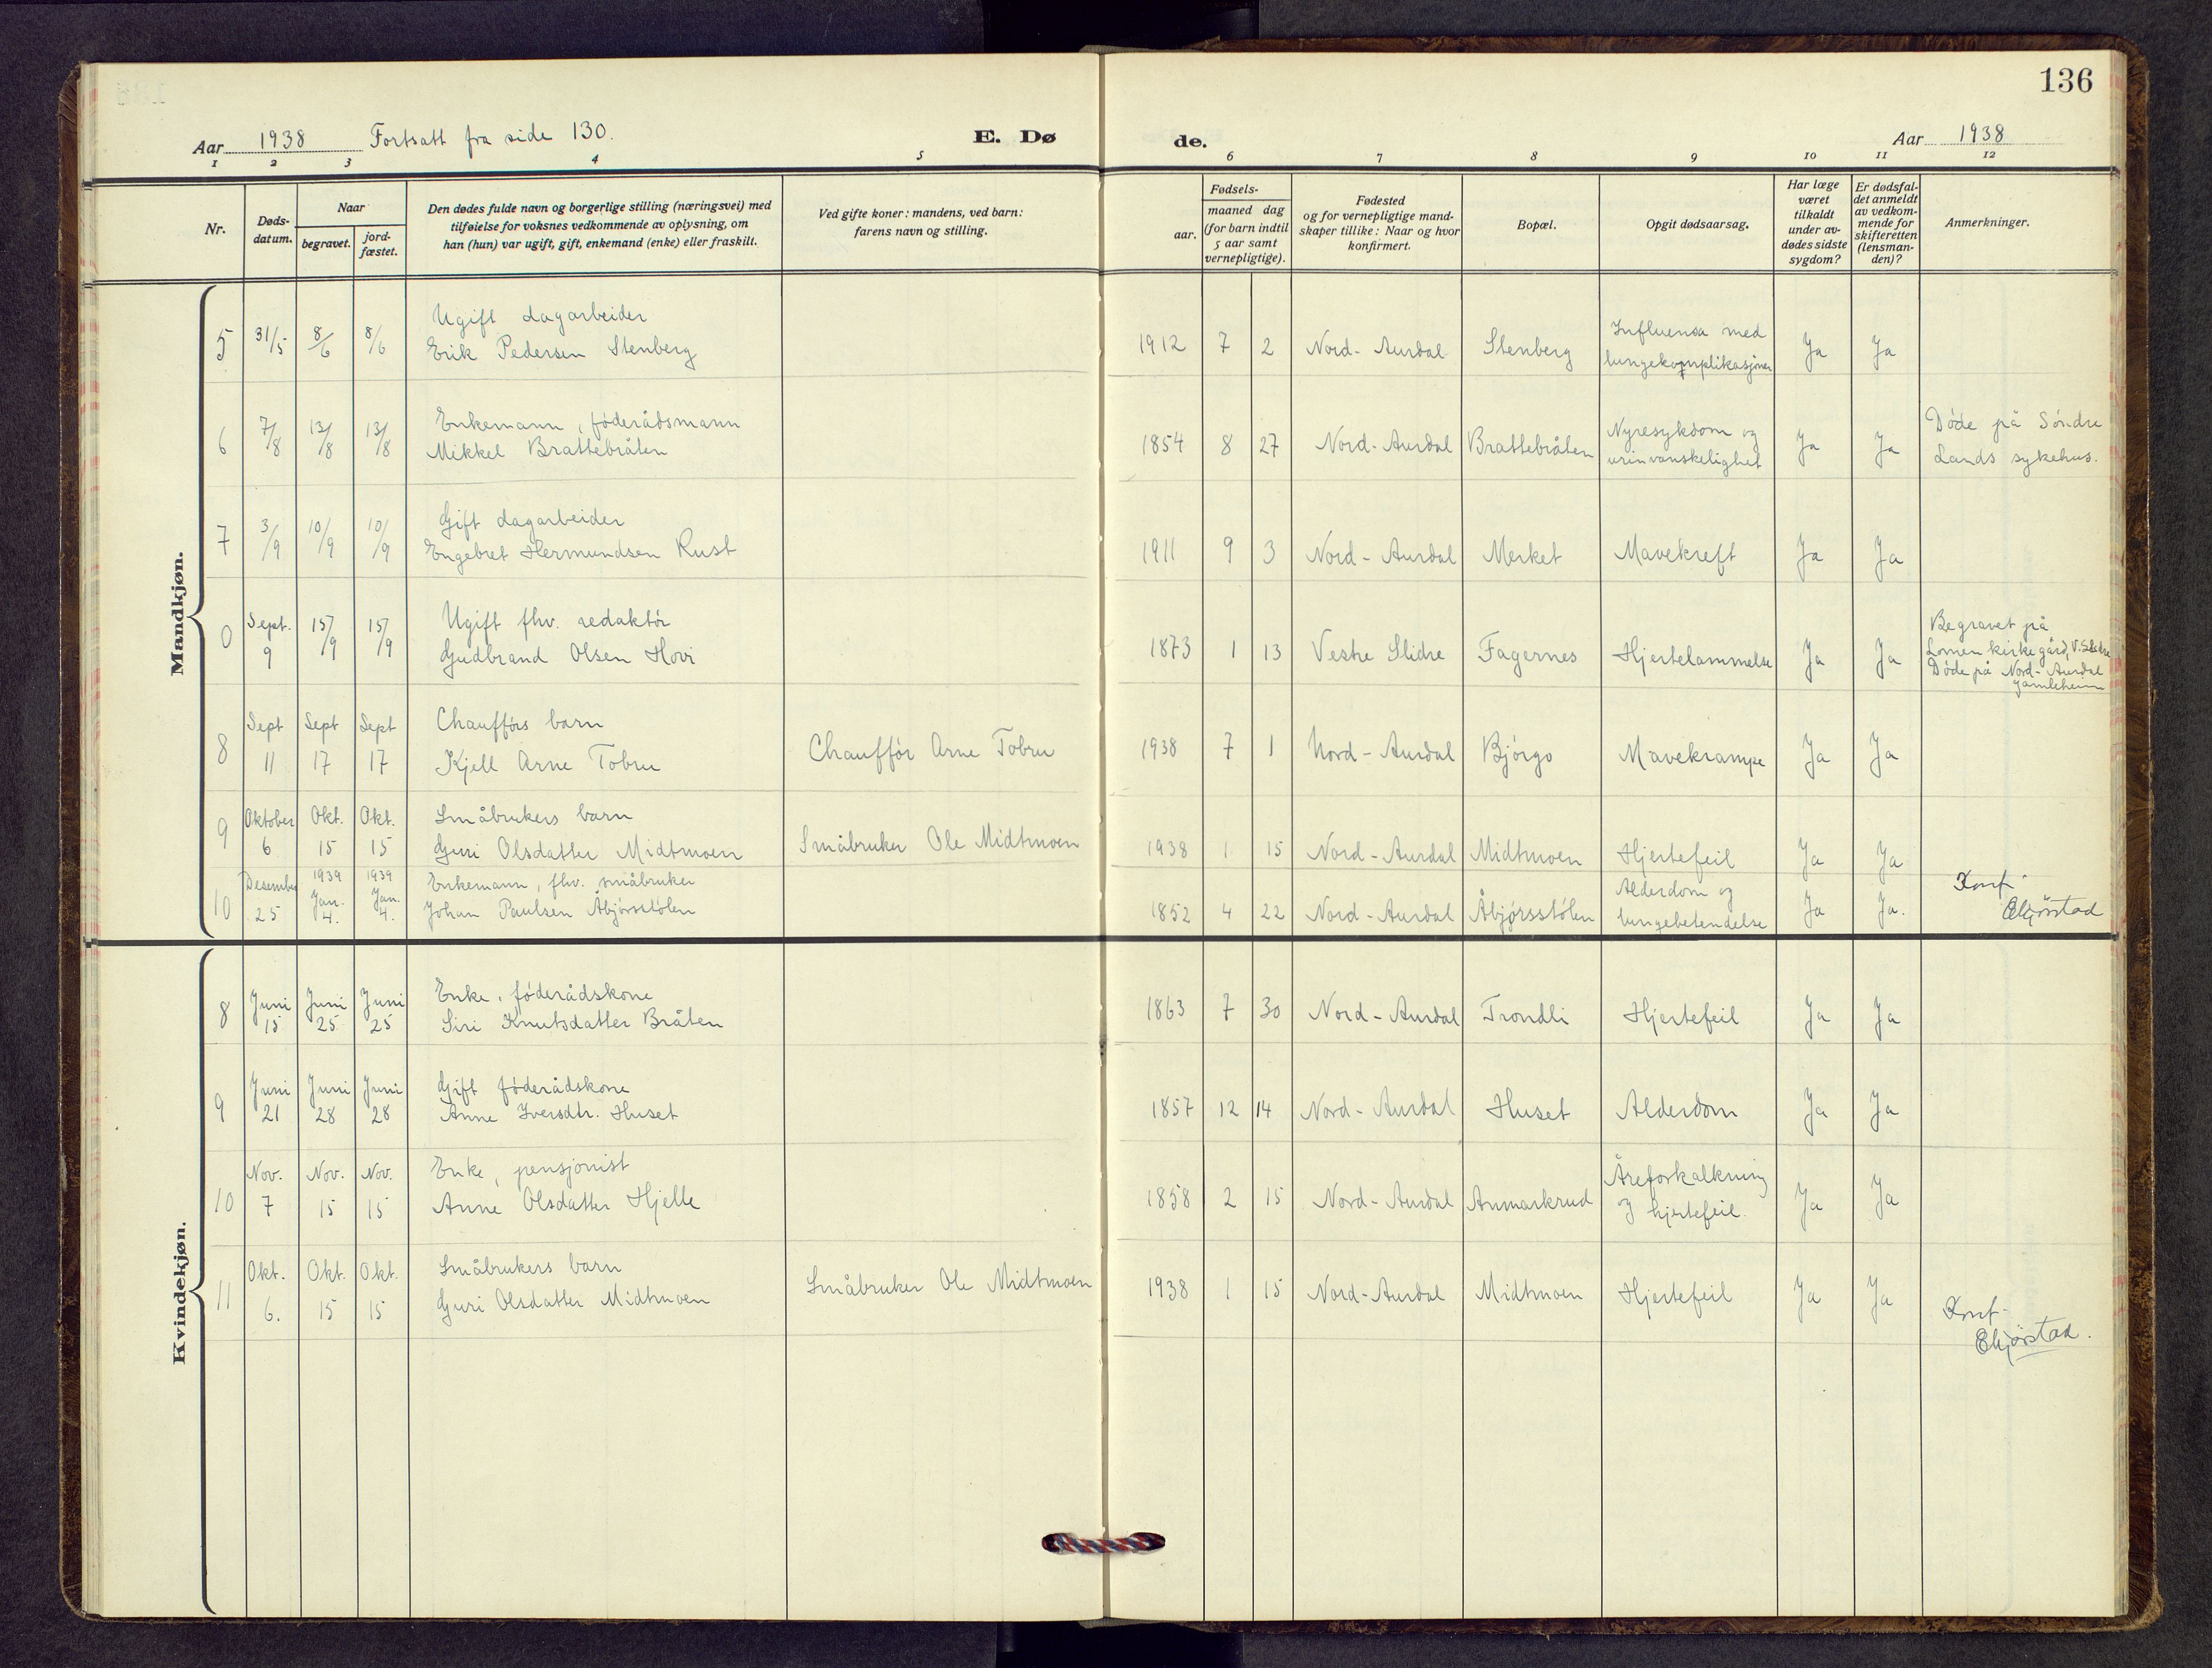 136
Aar 1938 Fortsatt fra side 130. E. Dø de. Aar 1938
1 2 3 4 5 6 7 8 9 10 11 12
Nr.
Døds-
datum.
Naar
begravet.
jord-
fæstet.
Den dødes fulde navn og borgerlige stilling (næringsvei) med
tilføielse for voksnes vedkommende av oplysning, om
han (hun) var ugift, gift, enkemand (enke) eller fraskilt.
Ved gifte koner: mandens, ved barn:
farens navn og stilling.
Fødsels-
aar.
maaned dag
(for barn indtil
5 aar samt
vernepligtige).
Fødested
og for vernepligtige mand-
skaper tillike: Naar og hvor
konfirmert.
Bopæl.
Opgit dødsaarsag.
Har læge
været
tilkaldt
under av-
dødes sidste
sygdom?
Er dødsfal-
det anmeldt
av vedkom-
mende for
skifteretten
(lensman-
den)?
Anmerkninger.
Mandkjøn.
5 31/5 8/6 8/6
Ugift dagarbeider
Erik Pedersen Stenberg
1912 7 2 Nord-Aurdal Stenberg
Influensa med
lungekomplikasjoner
Ja Ja
6 7/8 13/8 13/8
Enkemann, føderådsmann
Mikkel Brattebråten
1854 8 27 Nord-Aurdal Brattebråten
Nyresykdom og
urinvanskelighet
Ja Ja
Døde på Søndre
Lands sykehus.
7 3/9 10/9 10/9
Gift dagarbeider
Engebret Hermundsen Rust
1911 9 3 Nord-Aurdal Merket Mavekreft Ja Ja
0 Sept. 9 15/9 15/9
Ugift fhv. redaktør
Gudbrand Olsen Hovi
1873 1 13 Vestre Slidre Fagernes Hjertelammelse Ja Ja
Begravet på
Lomen kirkegård, V. Slidre
Døde på Nord-Aurdal
gamleheim
8 Sept 11 Sept 17 Sept 17
Chaufførs barn
Kjell Arne Tobru
Chauffør Arne Tobru
1938 7 1 Nord-Aurdal Bjørgo Mavekrampe Ja Ja
9 Oktober 6 Okt. 15 Okt. 15
Småbrukers barn
Guri Olsdatter Midtmoen
Småbruker Ole Midtmoen
1938 1 15 Nord-Aurdal Midtmoen Hjertefeil Ja Ja
10 Desember 25 1939 Jan. 4. 1939 Jan. 4.
Enkemann, fhv. småbruker
Johan Paulsen Åbjørsstølen
1852 4 22 Nord-Aurdal Åbjørsstølen
Alderdom og
lungebetendelse
Ja Ja.
Konf.
Kvindekjøn.
8 Juni 15 Juni 25 Juni 25
Enke, føderådskone
Siri Knutsdatter Bråten
1863 7 30 Nord-Aurdal Trondli Hjertefeil Ja Ja
9 Juni 21 Juni 28 Juni 28
Gift føderådskone
Anne Iversdtr. Huset
1857 12 14 Nord-Aurdal Huset Alderdom Ja Ja
10 Nov. 7 Nov. 15 Nov. 15
Enke, pensjonist
Anne Olsdatter Hjelle
1858 2 15 Nord-Aurdal Anmarkrud
Åreforkalkning
og hjertefeil.
Ja Ja
11 Okt. 6. Okt. 15 Okt. 15
Småbrukers barn
Guri Olsdatter Midtmoen
Småbruker Ole Midtmoen
1938 1 15 Nord-Aurdal Midtmoen Hjertefeil Ja Ja
Konf.